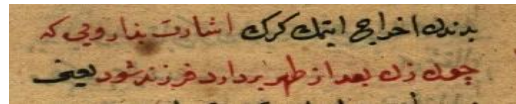 بدندن اخراج ایتمك كرك اشارت بدارویی که
چون زن بعد از طهر بردارد فرزند شود یعنی